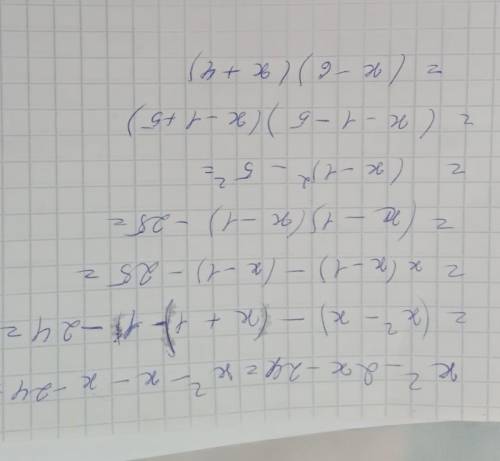 x² - 2x - 24 = x² - x - x - 24
= (x² - x) - (x + 1) - 1 - 24 =
= x(x - 1) - (x - 1) - 25 =
= (x - 1)(x - 1) - 25 =
= (x - 1)² - 5² =
= (x - 1 - 5)(x - 1 + 5)
= (x - 6)(x + 4)